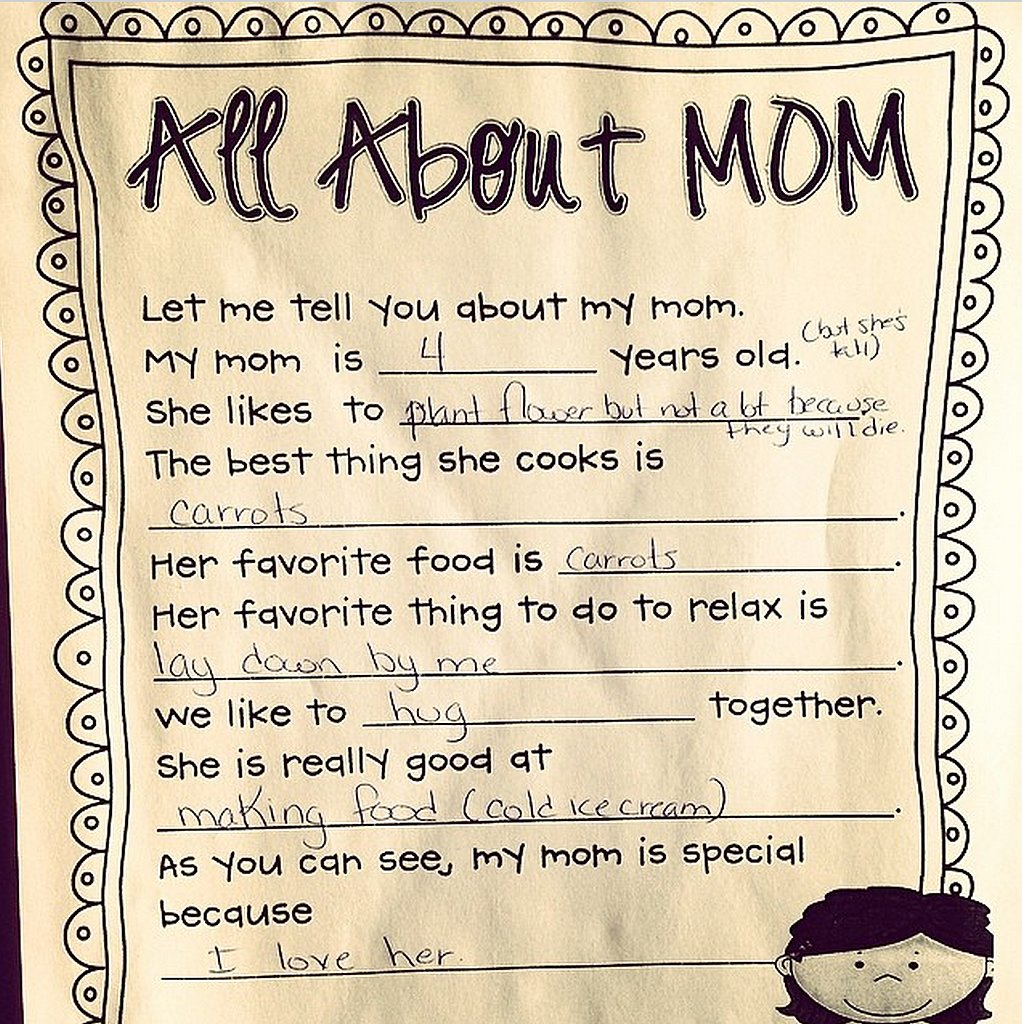 All About MOM
Let me tell you about my mom.
My mom is 4 years old. (but she's
tall)
She likes to plant flower but not a lot because
they will die.
The best thing she cooks is
carrots.
Her favorite food is carrots.
Her favorite thing to do to relax is
lay down by me.
We like to hug together.
She is really good at
making food (cold ice cream).
As you can see, my mom is special
because
I love her.